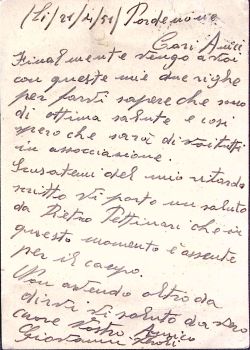 Li/21/4/51/ Pordenone
Cari Amici
Finalmente vengo a voi
con queste mie due righe
per farvi sapere che
di ottima salute e così
spero che sarà di voi tutti
in associazione.
Scusatemi del mio ritardo
scritto vi porto un saluto
da Pietro Pettinari che in
questo momento è assente
per il campo.
Non avendo altro da
dirvi vi saluto da vero
cuore vostro Amico
Giovanni